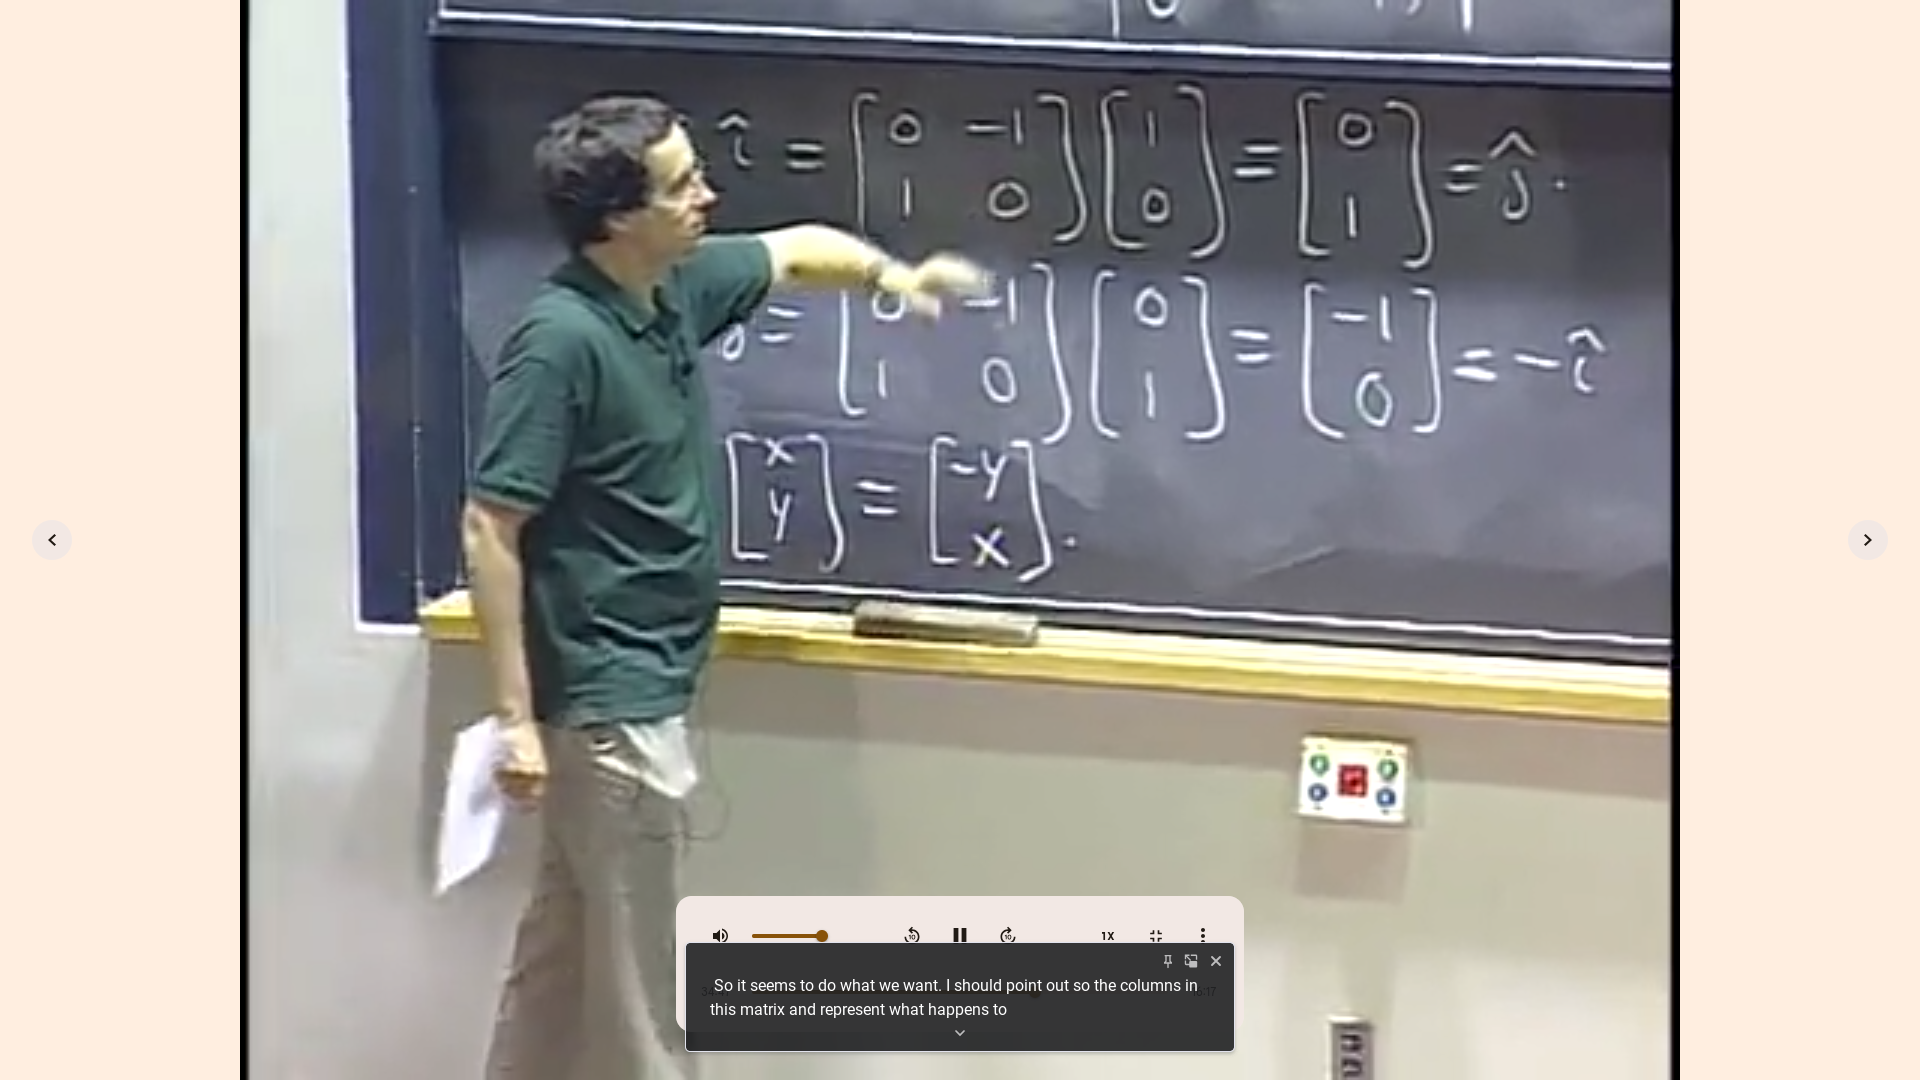 î = [0 -1 1 0] [1 0] = [0 1] = ĵ.
= [0 -1 1 0] [0 1] = [-1 0] = -î
[x y] = [-y x].
1X
So it seems to do what we want. I should point out so the columns in
this matrix and represent what happens to